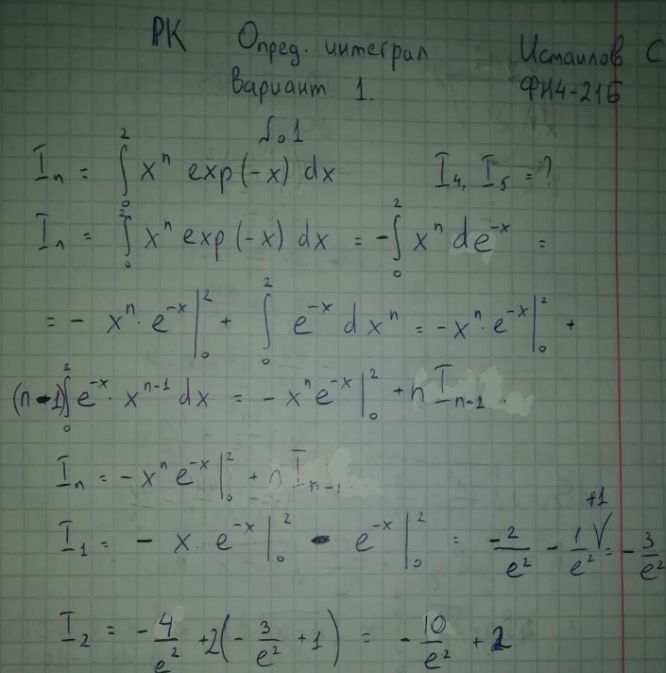 РК Опред. интеграл Исмаилов С
Вариант 1. ФН4-21Б
№1
I_n = ∫_0^2 x^n exp(-x) dx I_4, I_5 = ?
I_n = ∫_0^2 x^n exp(-x) dx = -∫_0^2 x^n de^{-x} =
= - x^n · e^{-x} |_0^2 + ∫_0^2 e^{-x} dx^n = -x^n · e^{-x} |_0^2 +
(n-1)∫_0^2 e^{-x} · x^{n-1} dx = -x^n e^{-x} |_0^2 + n I_{n-1}.
I_n = -x^n e^{-x} |_0^2 + n I_{n-1}
I_1 = - x e^{-x} |_0^2 - e^{-x} |_0^2 = -2/e^2 - 1/e^2 +1 = -3/e^2
I_2 = -4/e^2 + 2(-3/e^2 + 1) = -10/e^2 + 2